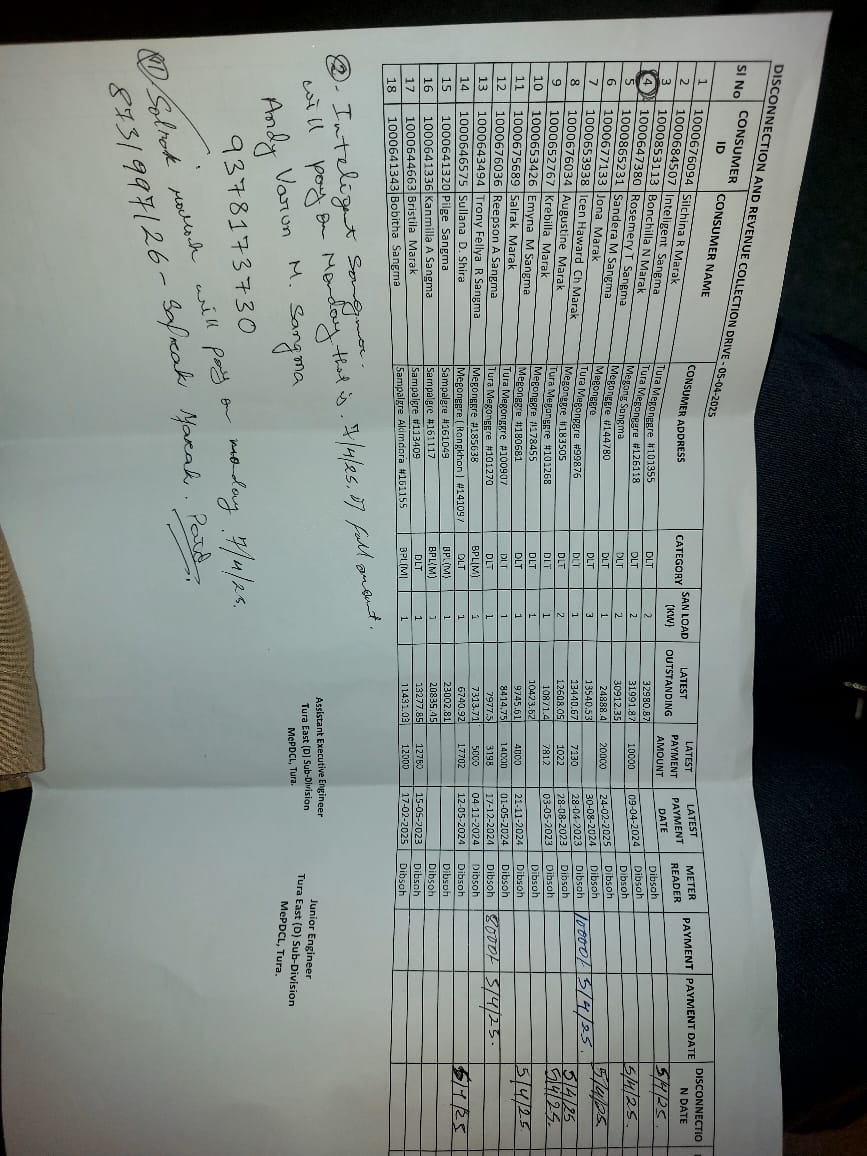 DISCONNECTION AND REVENUE COLLECTION DRIVE - 05-04-2025
Sl No CONSUMER ID CONSUMER NAME CONSUMER ADDRESS CATEGORY SAN LOAD (KW) LATEST OUTSTANDING LATEST PAYMENT AMOUNT LATEST PAYMENT DATE METER READER PAYMENT PAYMENT DATE DISCONNECTION DATE
1 1000676094 Silchina R Marak Tura Megonggre #101355 DLT 2 32980.87 Dibsoh 5/4/25.
2 1000684507 Inteligent Sangma Tura Megonggre #126118 DLT 2 31991.87 10000 09-04-2024 Dibsoh
3 1000853113 Bonchilla N Marak Megong Songma DLT 2 30912.35 Dibsoh 5/4/25.
4 1000647380 Rosemery T Sangma Megonggre #144780 DLT 1 24888.4 20000 24-02-2025 Dibsoh
5 1000865231 Sandera M Sangma Megonggre DLT 3 13540.53 30-08-2024 Dibsoh 5/4/25.
6 1000677133 Jona Marak Tura Megonggre #99876 DLT 1 13440.67 7130 28-04-2023 Dibsoh 10000/- 5/4/25.
7 1000653938 Icen Haward Ch Marak Megonggre #183505 DLT 2 12608.05 1022 28-08-2023 Dibsoh 5/4/25
8 1000676034 Augustine Marak Tura Megonggre #101268 DLT 1 10871.4 7812 03-05-2023 Dibsoh 5/4/25.
9 1000652767 Krebilla Marak Megonggre #178455 DLT 1 10423.62 Dibsoh
10 1000653426 Emyna M Sangma Megonggre #180681 DLT 1 9745.61 4000 21-11-2024 Dibsoh 5/4/25
11 1000675689 Salrak Marak Tura Megonggre #100907 DLT 1 8414.75 14000 01-05-2024 Dibsoh
12 1000676036 Reepson A Sangma Tura Megonggre #101270 DLT 1 7977.5 3198 17-12-2024 Dibsoh 8000/- 5/4/25.
13 1000643494 Trony Fellya R Sangma Megonggre #185638 BPL(M) 1 7313.71 5000 04-11-2024 Dibsoh
14 1000646575 Sullana D. Shira Megonggre (Rongkhon) #141097 DLT 1 6740.92 17702 12-05-2024 Dibsoh 5/4/25
15 1000641320 Pilge Sangma Sampalgre #161049 BPL(M) 1 23002.81 Dibsoh
16 1000641336 Kanmilla A Sangma Sampalgre #161117 BPL(M) 1 20835.45 Dibsoh
17 1000644663 Bristila Marak Sampalgre #113409 DLT 1 13277.85 12780 15-05-2023 Dibsoh
18 1000641343 Bobitha Sangma Sampalgre Akimdora #161155 BPL(M) 1 11431.03 12000 17-02-2025 Dibsoh
② - Inteligent Sangma.
will pay on Monday that is. 7/4/25, full amount.
Andy Varion M. Sangma
9378173730
⑪ Salrak marak will pay on monday. 7/4/25.
873/997/26 - Salreak Marak. Paid.
Assistant Executive Engineer
Tura East (D) Sub-Division
MePDCL, Tura.
Junior Engineer
Tura East (D) Sub-Division
MePDCL, Tura.